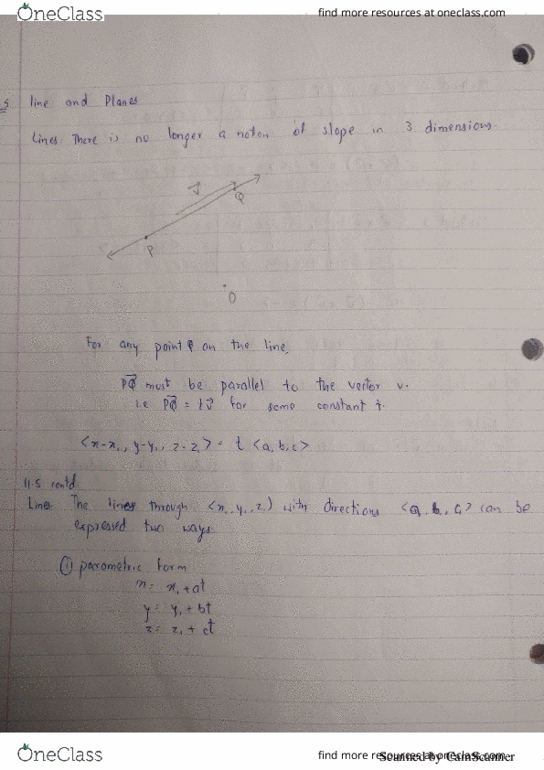 OneClass
find more resources at oneclass.com
5 line and Planes
Lines: There is no longer a noton of slope in 3 dimensions.
v
Q
P
O
For any point Q on the line,
PQ must be parallel to the vector v.
i.e PQ = tv for some constant t.
<x-x₁, y-y₁, z-z₁> = t <a,b,c>
11.5 contd
Line: The lines through <x₁, y₁, z₁) with directions <a, b, c> can be
expressed two ways.
① parametric form
x = x₁ + at
y = y₁ + bt
z = z₁ + ct
OneClass
find more resources at oneclass.com
Scanned by CamScanner